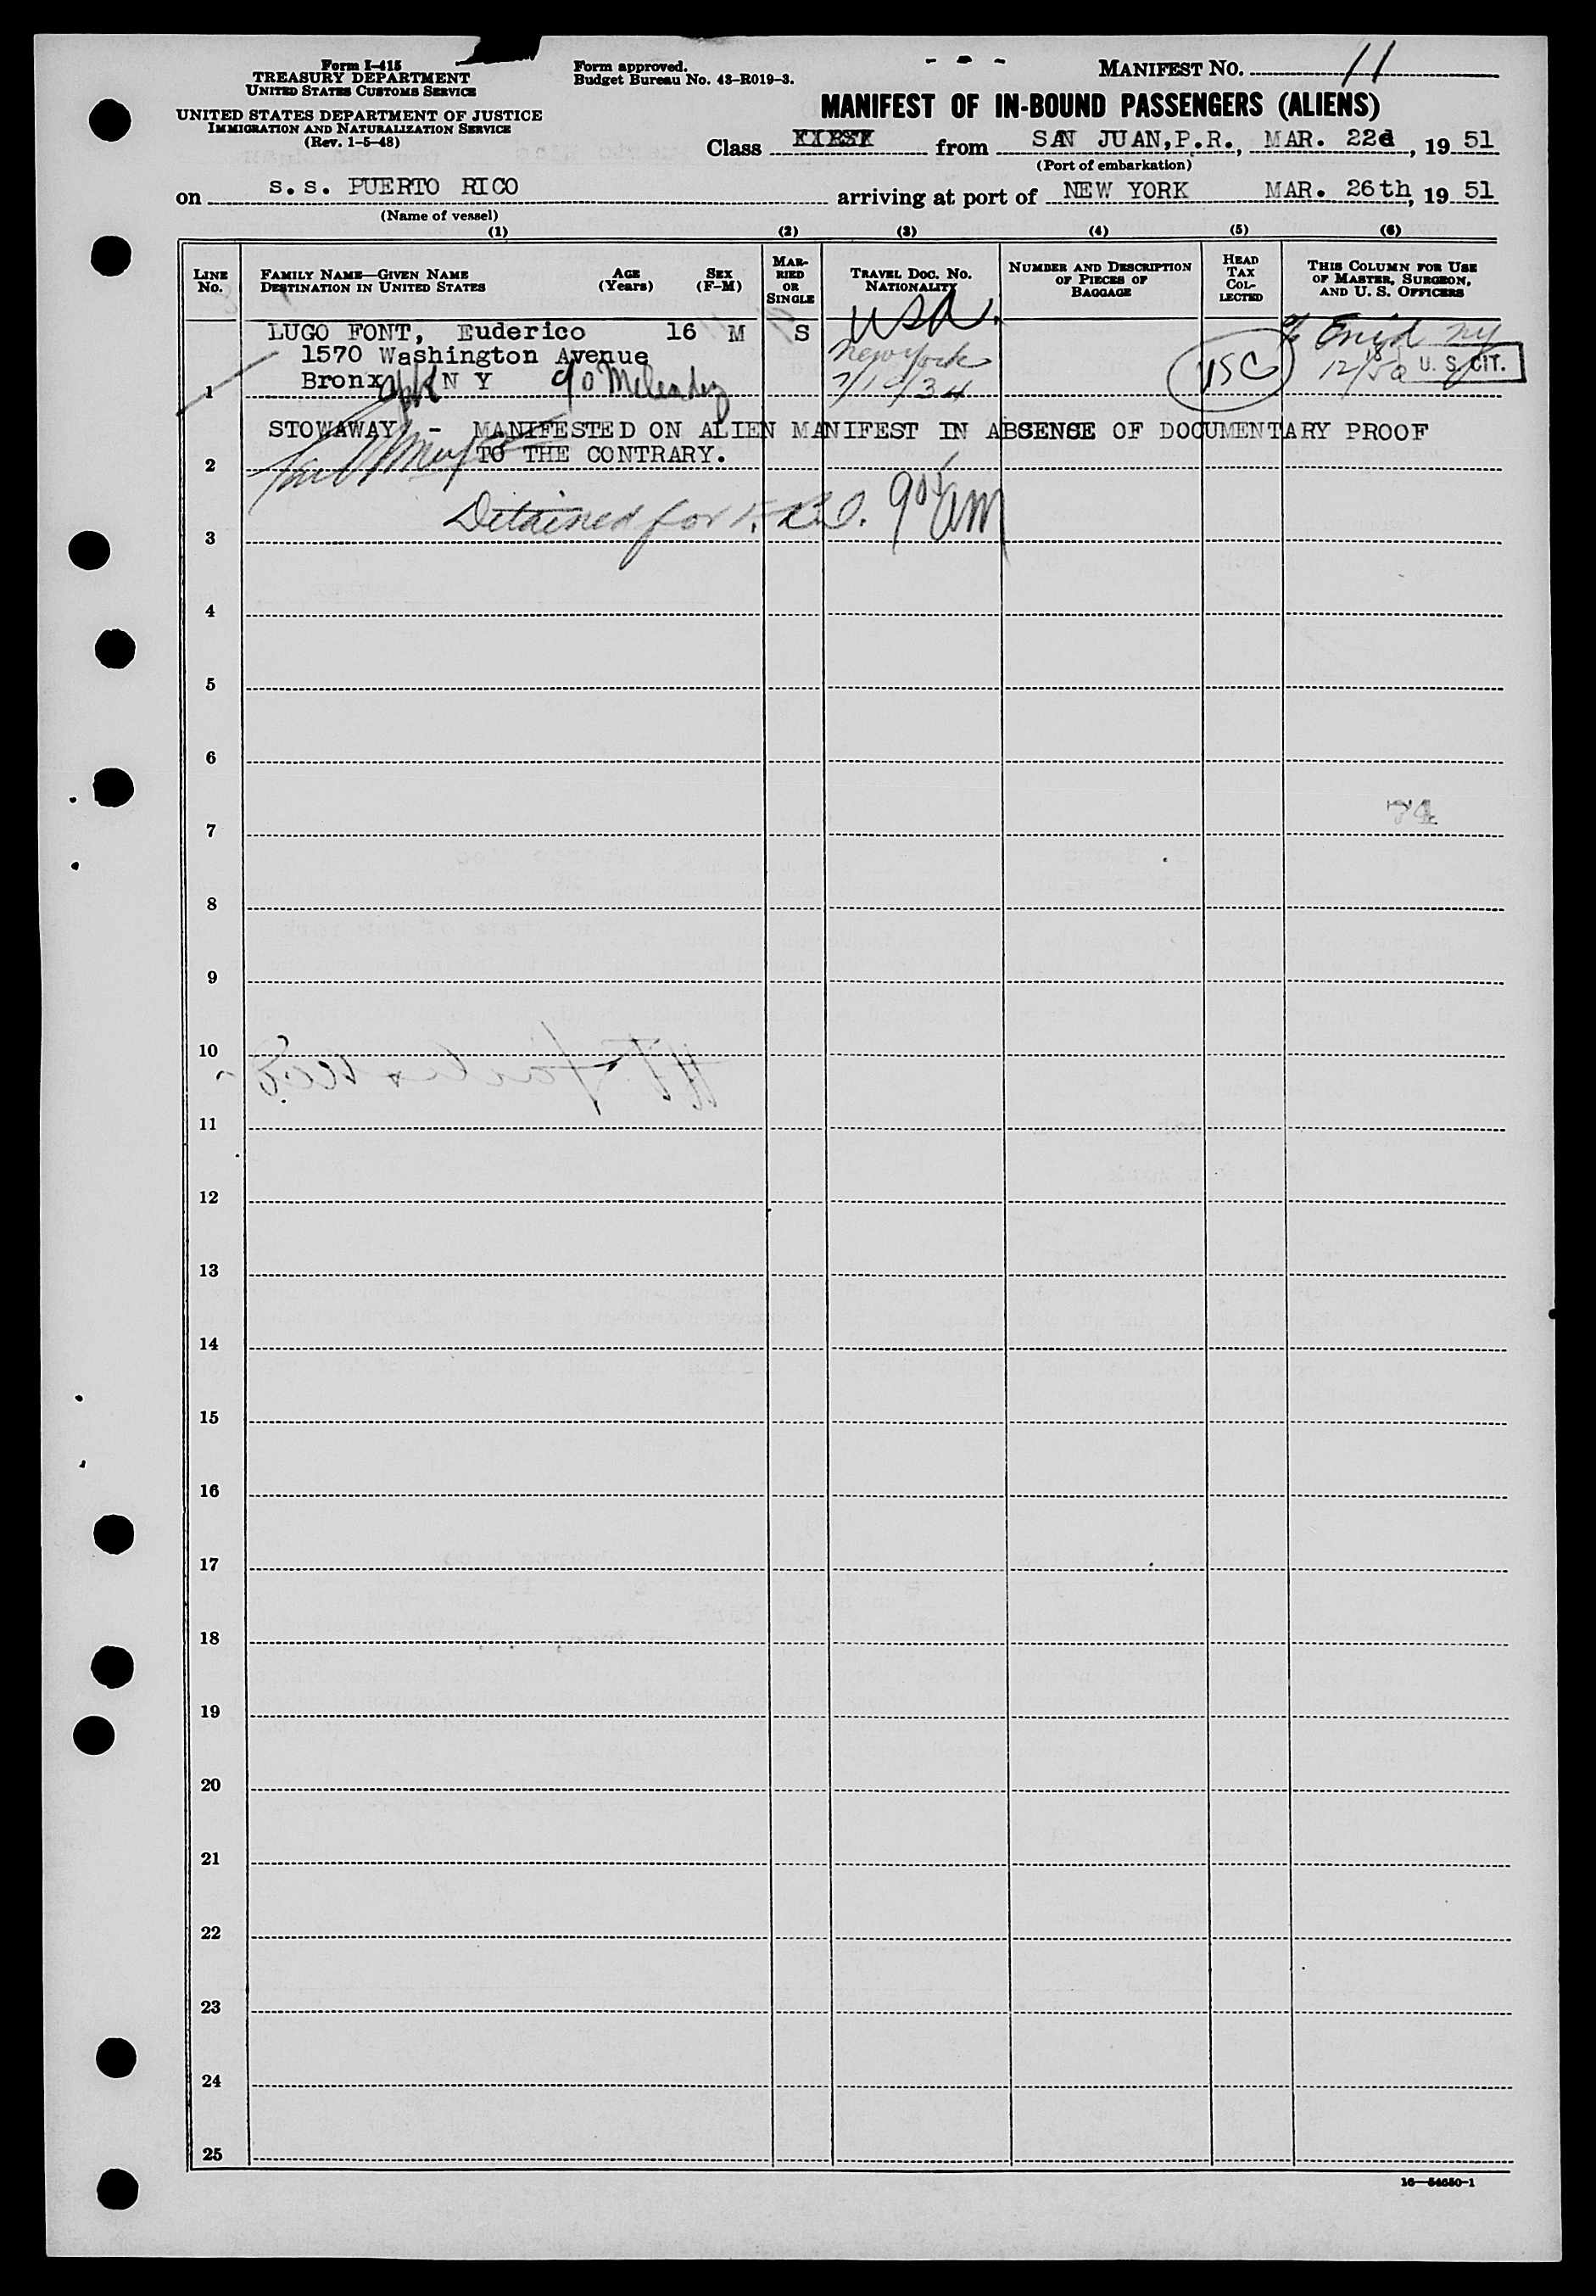 Form I-415
TREASURY DEPARTMENT
UNITED STATES CUSTOMS SERVICE
UNITED STATES DEPARTMENT OF JUSTICE
IMMIGRATION AND NATURALIZATION SERVICE
(Rev. 1-5-48)
Form approved.
Budget Bureau No. 43-R019-3.
- - -
MANIFEST NO. 11
MANIFEST OF IN-BOUND PASSENGERS (ALIENS)
Class FIRST from SAN JUAN, P.R., MAR. 22d, 19 51
(Port of embarkation)
on s.s. PUERTO RICO arriving at port of NEW YORK MAR. 26th, 19 51
(Name of vessel)
(1) (2) (3) (4) (5) (6)
LINE No.
FAMILY NAME—GIVEN NAME
DESTINATION IN UNITED STATES
AGE (Years)
SEX (F-M)
MARRIED OR SINGLE
TRAVEL DOC. NO.
NATIONALITY
NUMBER AND DESCRIPTION OF PIECES OF BAGGAGE
HEAD TAX COLLECTED
THIS COLUMN FOR USE OF MASTER, SURGEON, AND U. S. OFFICERS
1 LUGO FONT, Euderico 16 M S USA.
1570 Washington Avenue New York
Bronx N Y c/o Melendez 7/10/34 USC U. S. CIT.
STOWAWAY - MANIFESTED ON ALIEN MANIFEST IN ABSENSE OF DOCUMENTARY PROOF
2 TO THE CONTRARY.
Detained for 9 05 am
3
4
5
6
7 74
8
9
10
11
12
13
14
15
16
17
18
19
20
21
22
23
24
25
16—54650-1